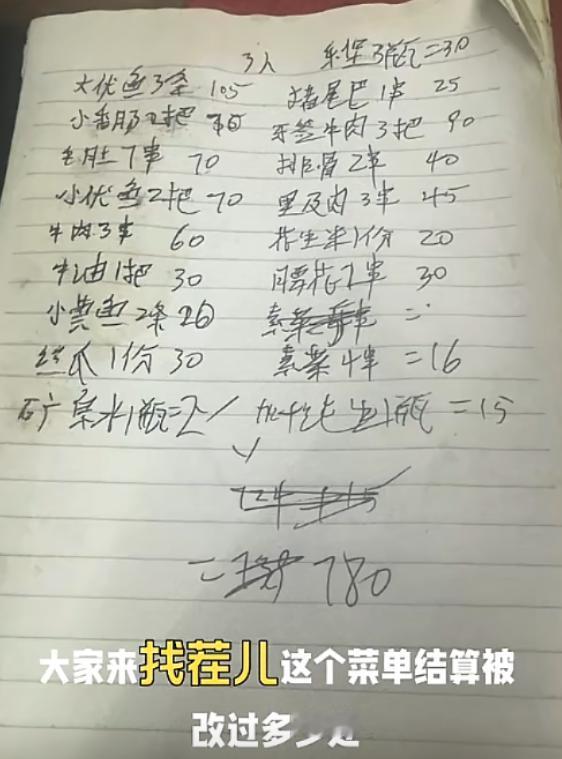 3人 乐堡3瓶=30
大优鱼3条 105 猪尾巴1串 25
小香肠2把 牙签牛肉3把 90
毛肚7串 70 排骨2串 40
小优鱼2把 70 里及肉3串 45
牛肉3串 60 花生米1份 20
牛油1把 30 腰花2串 30
小黄鱼2条 26 素菜 =
丝瓜1份 30 素菜4串 =16
矿泉水1瓶=2 1瓶=15
780
大家来找茬儿这个菜单结算被
改过多少遍